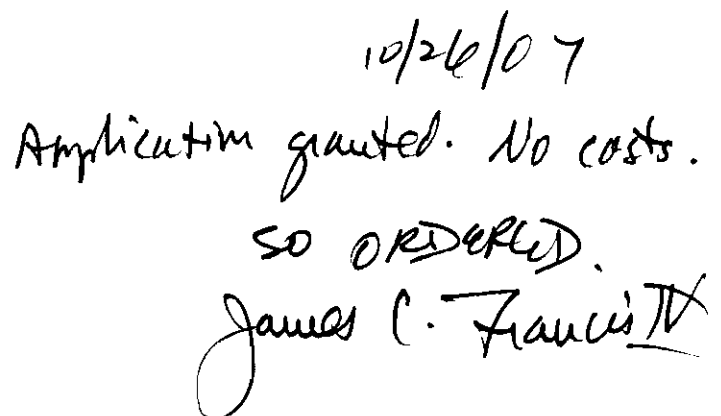 10/26/07
Application granted. No costs.
SO ORDERED.
James C. Francis IV